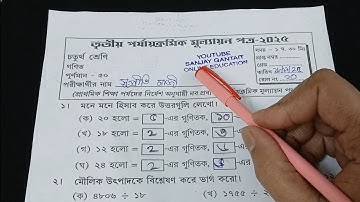 তৃতীয় পর্যায়ক্রমিক মূল্যায়ন পত্র-২০২৫
চতুর্থ শ্রেণি
গণিত
পূর্ণমান - ৫০
পরীক্ষার্থীর নাম
YOUTUBE
SANJAY GANTAIT
ONLINE EDUCATION
সময় - ১ ঘ. ৩০ মি
রোল
তারিখ
(প্রাথমিক শিক্ষা পর্ষদের নির্দেশ অনুযায়ী
১। মনে মনে হিসাব করে উত্তরগুলি লেখো।
(ক) ২০ হলো = ৫ এর গুণিতক, ১০
(খ) ১৮ হলো = ২ -এর গুণিতক, ৩
(গ) ১২ হলো = ২ -এর গুণিতক,
(ঘ) ২৪ হলো = ২ -এর গুণিতক,
২। মৌলিক উৎপাদকে বিশ্লেষণ করে ভাগ করো।
(ক) ৪৮০৬ ÷ ১৮ (খ) ১৯৫৫ ÷